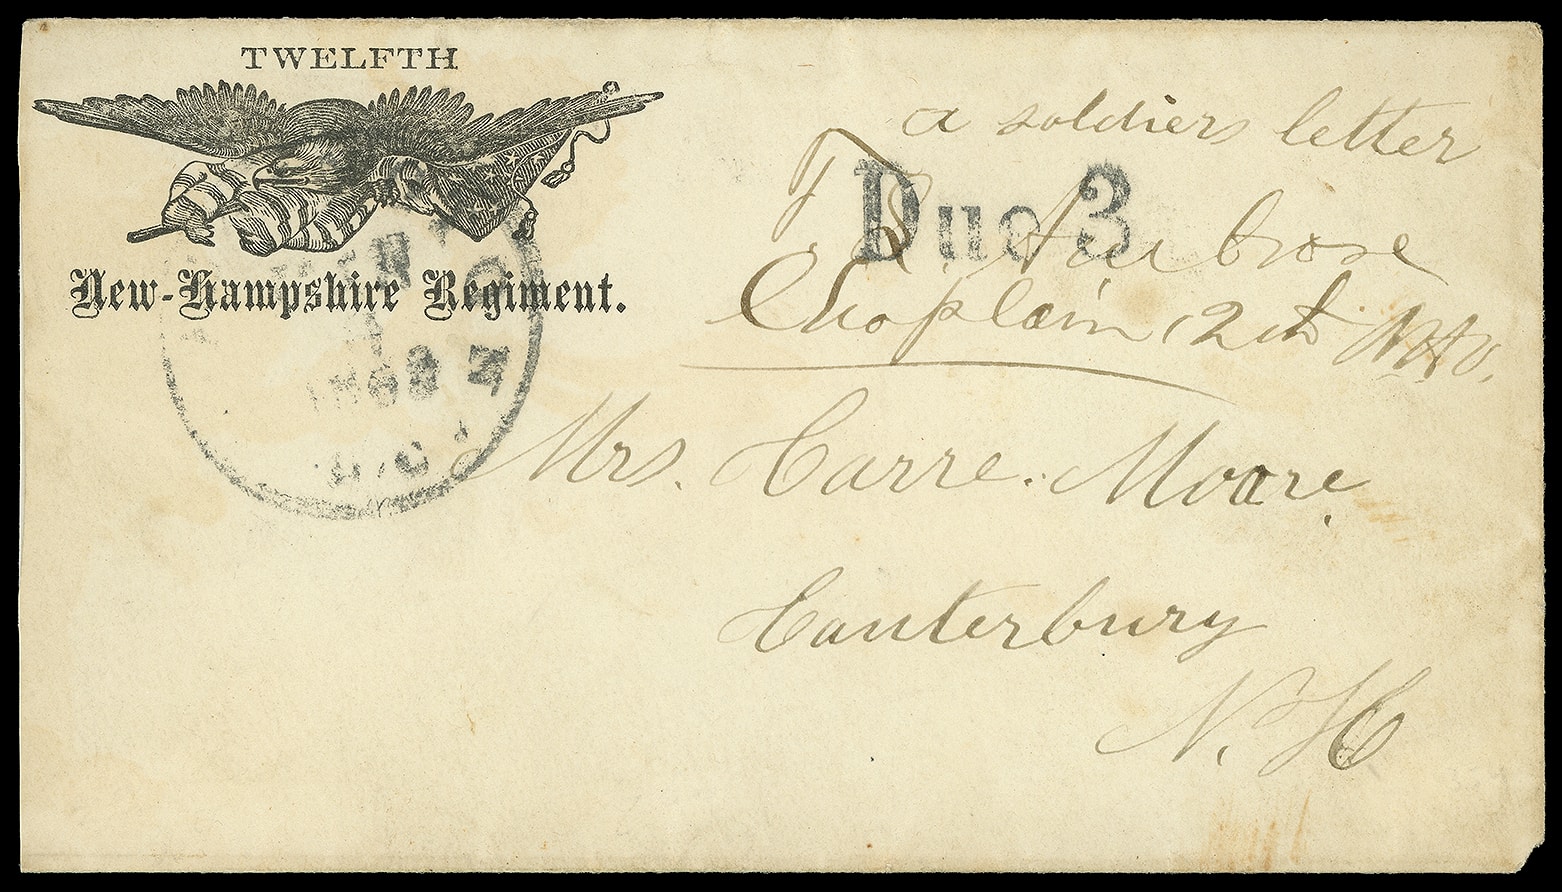 TWELFTH
New-Hampshire Regiment.
a soldiers letter
Due 3
T. Ambrose
Chaplain 12th N.H.V.
Mrs. Carre. Moore.
Canterbury
N. H